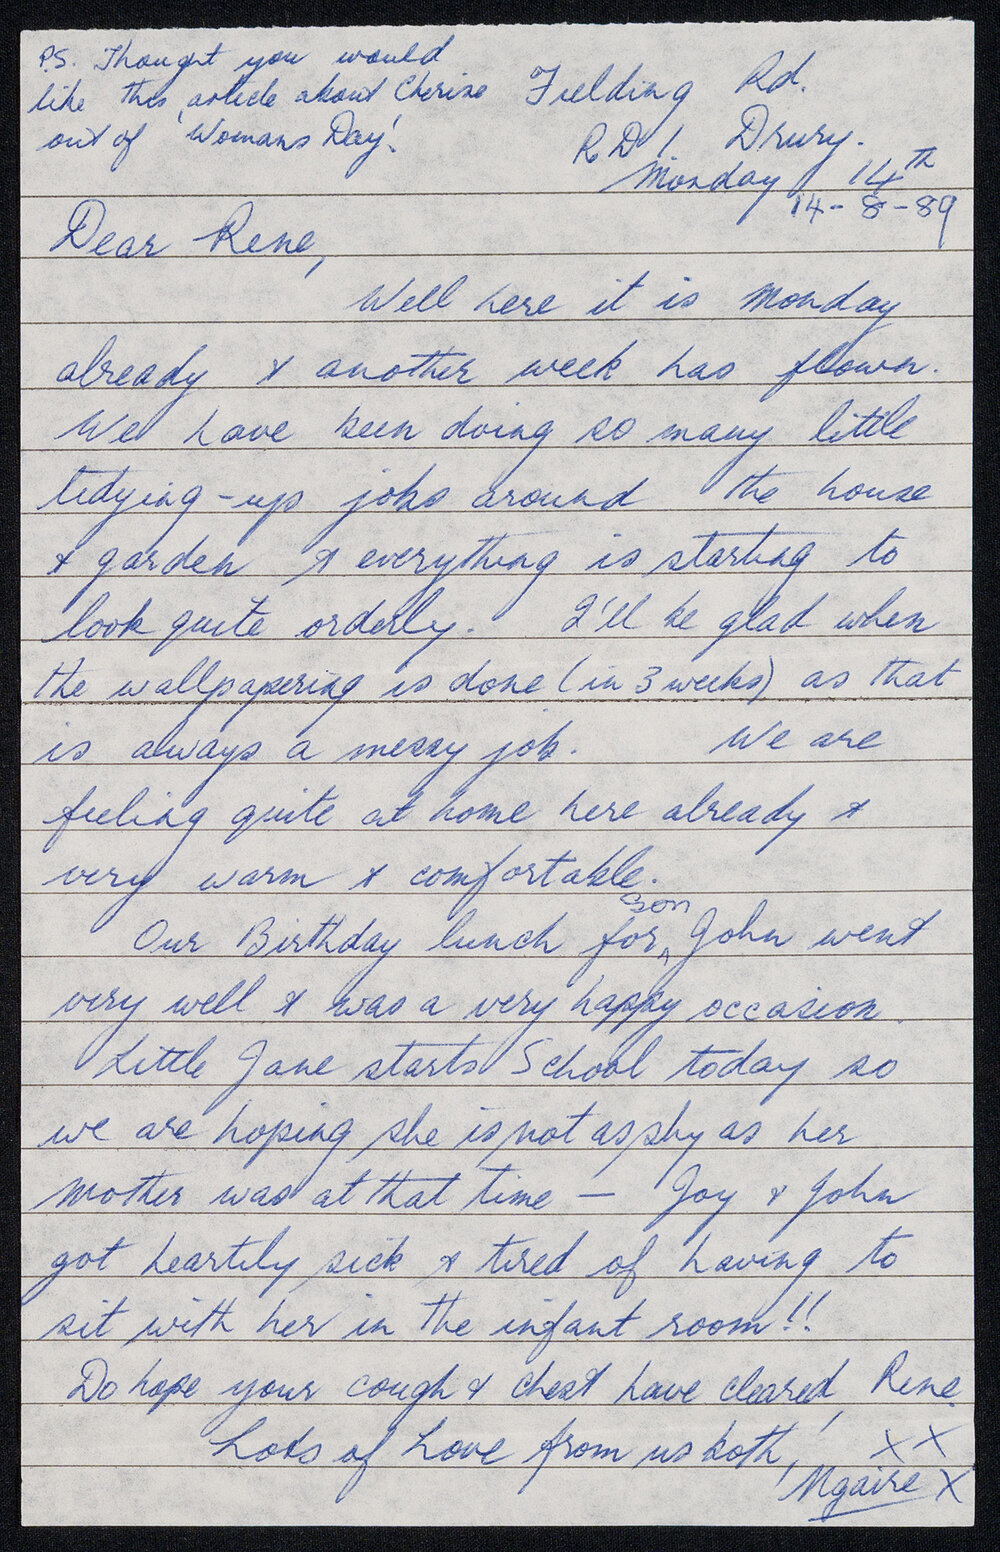 P.S. Thought you would
like this article about Cherise
out of 'Womans Day'.
Fielding Rd.
R.D 1 Drury.
Monday 14th
14-8-89
Dear Rene,
Well here it is Monday
already & another week has flown.
We have been doing so many little
tidying-up jobs around the house
& garden & everything is starting to
look quite orderly. I'll be glad when
the wallpapering is done (in 3 weeks) as that
is always a messy job. We are
feeling quite at home here already &
very warm & comfortable.
Our Birthday lunch for son John went
very well & was a very happy occasion.
Little Jane starts School today so
we are hoping she is not as shy as her
mother was at that time — Joy & John
got heartily sick & tired of having to
sit with her in the infant room!!
Do hope your cough & chest have cleared, Rene
Lots of Love from us both, x x
Ngaire x